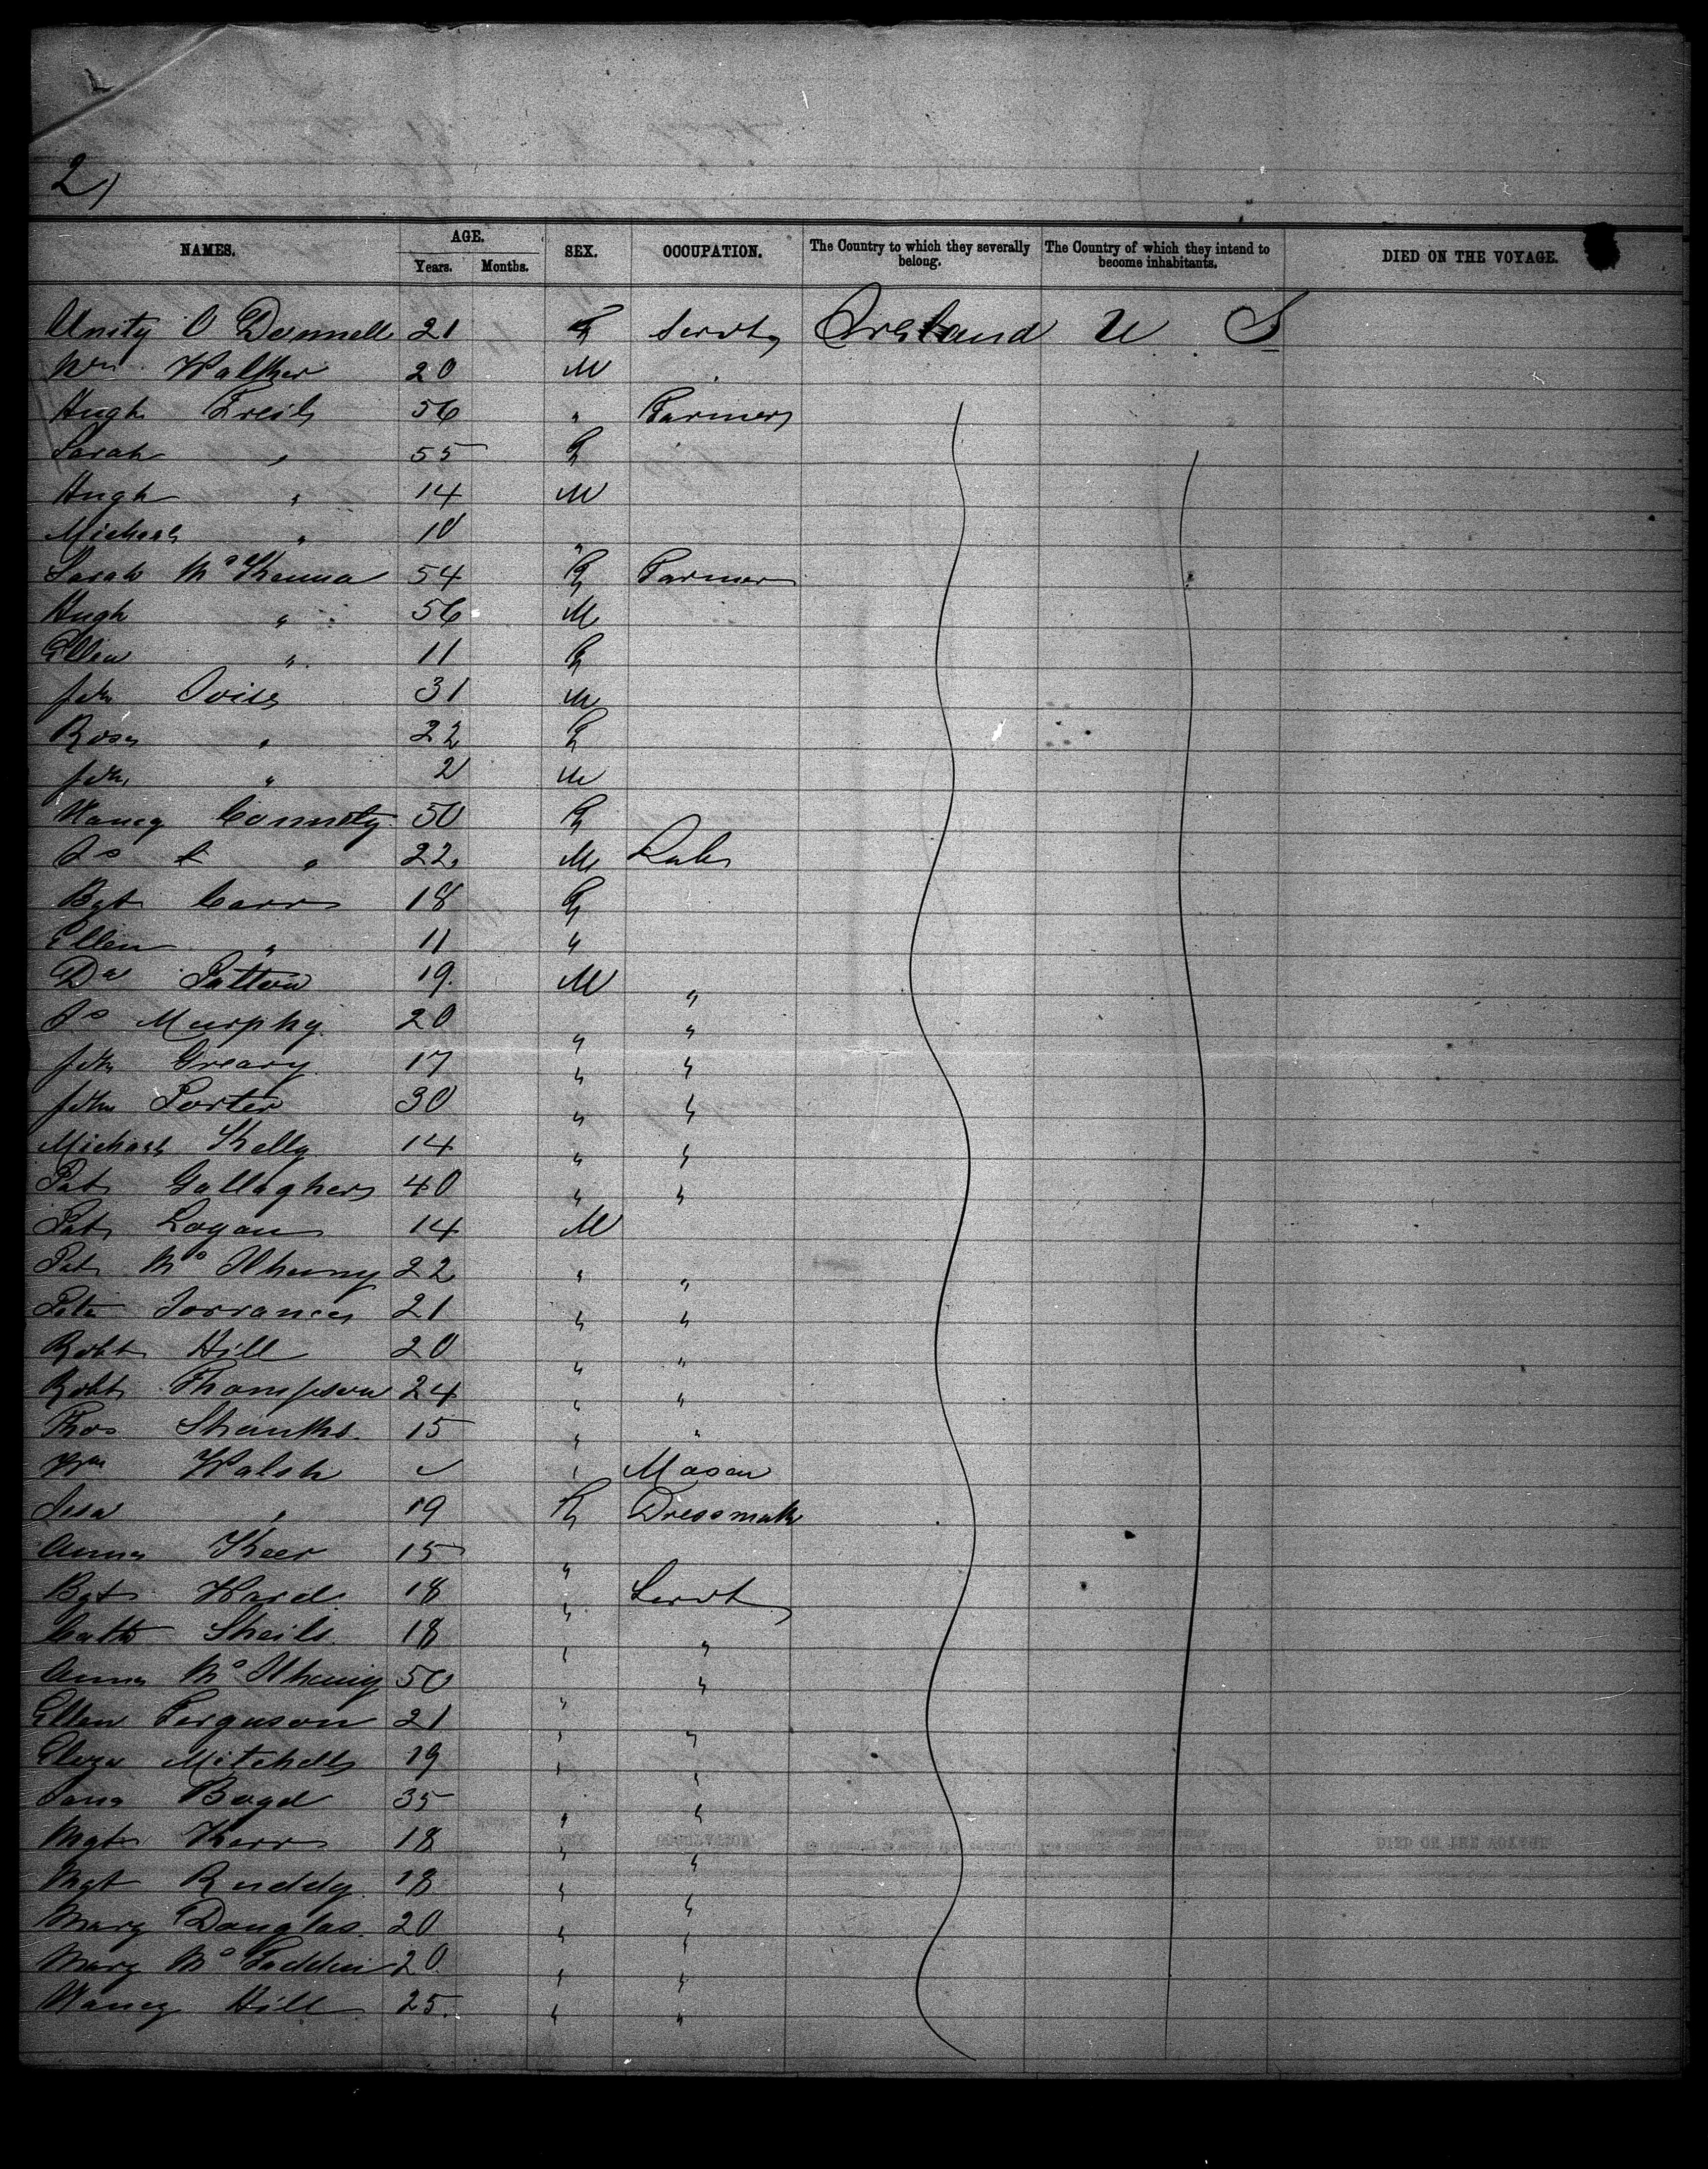 2)
NAMES. AGE. Years. Months. SEX. OCCUPATION. The Country to which they severally belong. The Country of which they intend to become inhabitants. DIED ON THE VOYAGE.
Unity O Donnell 21 F Servt Ireland U S
Wm Walker 20 M
Hugh Freil 56 " Farmer
Sarah " 55 F
Hugh " 14 M
Michael " 10 "
Sarah Mc Kenna 54 F Farmer
Hugh " 56 M
Ellen " 11 F
John 31 M
Rose " 22 F
John " 2 M
Nancy 50 F
" 22. M Lab
Bgt Carr 18 F
Ellen " 11 "
Da Patton 19. M "
Js Murphy 20 " "
John Greary 17 " "
John Porter 30 " "
Michael Kelly 14 " "
Pat Gallagher 40 " "
Pat Logan 14 M
Pat Mc 22 " "
Peter Torrance 21 " "
Robt Hill 20 " "
Robt Thompson 24 " "
Thos Shanks. 15 " "
Wm Walsh " Mason
" 19 F Dressmak
Anna Keer 15 "
Bgt Ward. 18 " Servt
Cath Sheils. 18 " "
Anna Mc 50 " "
Ellen Ferguson 21 " "
Eliza Mitchell 19 " "
Jane Boyd 35 " "
Mgt Kerr 18 " "
Mgt Ruddy 18 " "
Mary Douglas. 20 " "
Mary Mc Faddin 20. " "
Nancy Hill 25. " "